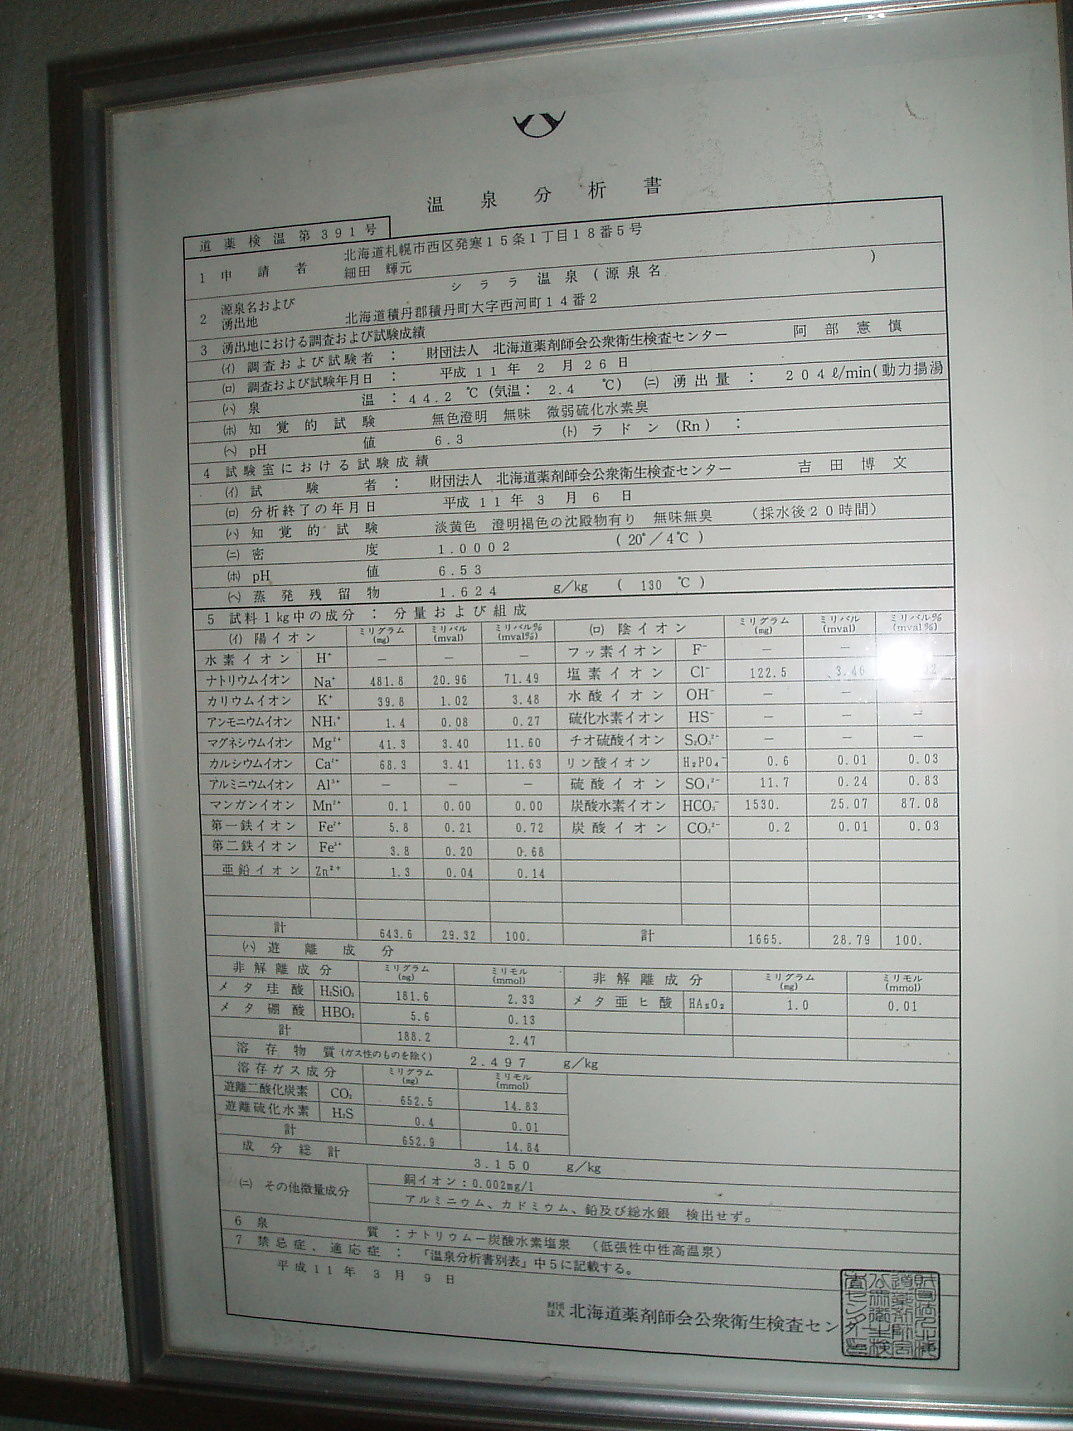 温泉分析書
道薬検温第391号
1 申請者 北海道札幌市西区発寒15条1丁目18番5号
細田 輝元
2 源泉名および湧出地 シララ温泉(源泉名 )
北海道積丹郡積丹町大字西河町14番2
3 湧出地における調査および試験成績
(イ) 調査および試験者: 財団法人 北海道薬剤師会公衆衛生検査センター 阿部憲慎
(ロ) 調査および試験年月日: 平成11年2月26日
(ハ) 泉温: 44.2℃(気温: 2.4℃) (ニ) 湧出量: 204ℓ/min(動力揚湯
(ホ) 知覚的試験 無色澄明 無味 微弱硫化水素臭
(ヘ) pH値 6.3 (ト) ラドン(Rn):
4 試験室における試験成績
(イ) 試験者: 財団法人 北海道薬剤師会公衆衛生検査センター 吉田博文
(ロ) 分析終了の年月日 平成11年3月6日
(ハ) 知覚的試験 淡黄色 澄明褐色の沈殿物有り 無味無臭 (採水後20時間)
(ニ) 密度 1.0002 (20°/4℃)
(ホ) pH値 6.53
(ヘ) 蒸発残留物 1.624 g/kg (130℃)
5 試料1kg中の成分:分量および組成
(イ) 陽イオン ミリグラム(mg) ミリバル(mval) ミリバル%(mval%) (ロ) 陰イオン ミリグラム(mg) ミリバル(mval) ミリバル%(mval%)
水素イオン H⁺ — — — フッ素イオン F⁻ — —
ナトリウムイオン Na⁺ 481.8 20.96 71.49 塩素イオン Cl⁻ 122.5 3.46
カリウムイオン K⁺ 39.8 1.02 3.48 水酸イオン OH⁻ — — —
アンモニウムイオン NH₄⁺ 1.4 0.08 0.27 硫化水素イオン HS⁻ — — —
マグネシウムイオン Mg²⁺ 41.3 3.40 11.60 チオ硫酸イオン S₂O₃²⁻ — — —
カルシウムイオン Ca²⁺ 68.3 3.41 11.63 リン酸イオン H₂PO₄⁻ 0.6 0.01 0.03
アルミニウムイオン Al³⁺ — — — 硫酸イオン SO₄²⁻ 11.7 0.24 0.83
マンガンイオン Mn²⁺ 0.1 0.00 0.00 炭酸水素イオン HCO₃⁻ 1530. 25.07 87.08
第一鉄イオン Fe²⁺ 5.8 0.21 0.72 炭酸イオン CO₃²⁻ 0.2 0.01 0.03
第二鉄イオン Fe³⁺ 3.8 0.20 0.68
亜鉛イオン Zn²⁺ 1.3 0.04 0.14
計 643.6 29.32 100. 計 1665. 28.79 100.
(ハ) 遊離成分
非解離成分 ミリグラム(mg) ミリモル(mmol) 非解離成分 ミリグラム(mg) ミリモル(mmol)
メタ珪酸 H₂SiO₃ 181.6 2.33 メタ亜ヒ酸 HAsO₂ 1.0 0.01
メタ硼酸 HBO₂ 5.6 0.13
計 188.2 2.47
溶存物質(ガス性のものを除く) 2.497 g/kg
溶存ガス成分 ミリグラム(mg) ミリモル(mmol)
遊離二酸化炭素 CO₂ 652.5 14.83
遊離硫化水素 H₂S 0.4 0.01
計 652.9 14.84
成分総計 3.150 g/kg
(ニ) その他微量成分 銅イオン:0.002mg/l
アルミニウム、カドミウム、鉛及び総水銀 検出せず。
6 泉質:ナトリウムー炭酸水素塩泉 (低張性中性高温泉)
7 禁忌症、適応症: 「温泉分析書別表」中5に記載する。
平成11年3月9日
財団法人 北海道薬剤師会公衆衛生検査センター